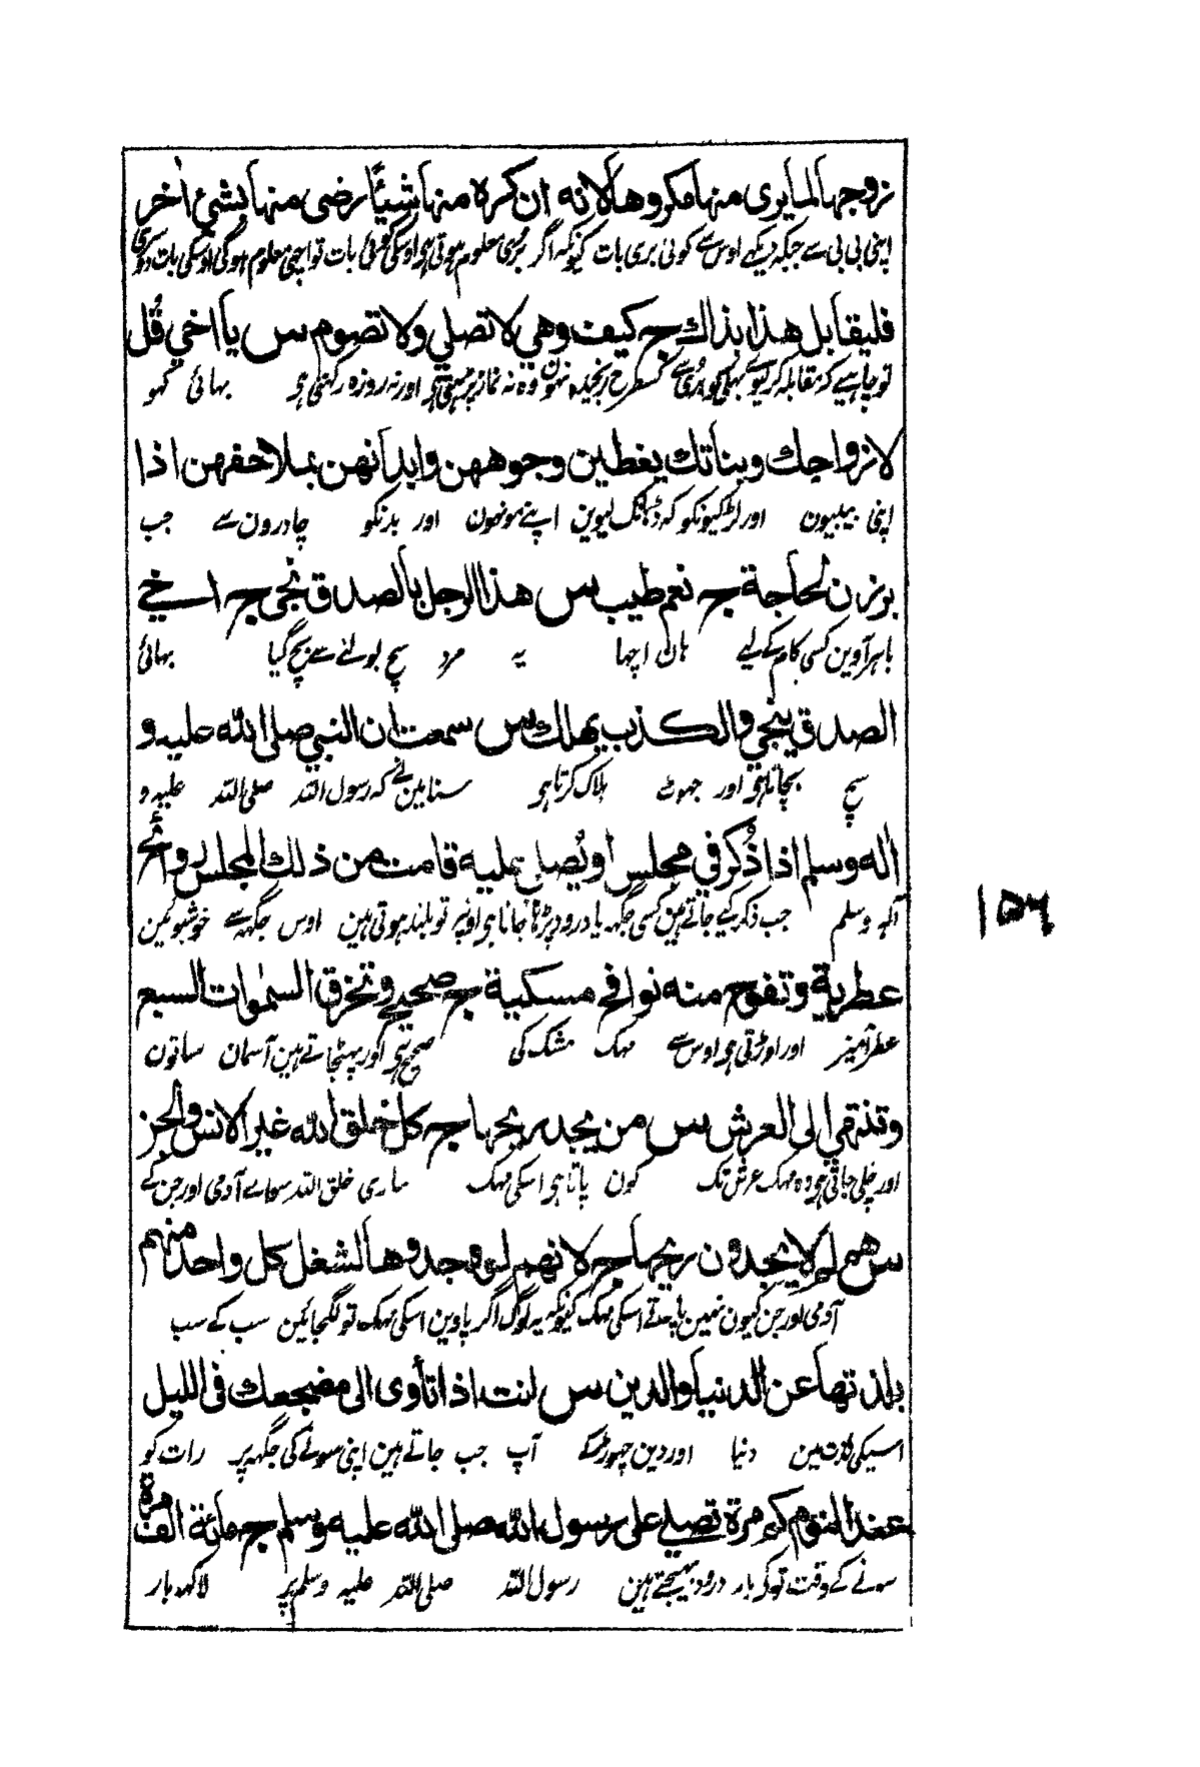 زوجها لما يرى منها مكروها لانه ان كره منها شيئًا رضى منها بشئ اخر
اپنی بی بی سے جبکہ دیکھے اوس سے کوئی بری بات کیونکہ اگر بری معلوم ہوتی ہو اوسکی کوئی بات تو اچھی معلوم ہوگی اوسکی بات دوسری
فليقابل هذا بذاك ج كيف وهي لا تصلي ولا تصوم س يا اخي قُل
تو چاہیے کہ مقابلہ کرلیوے پہلی کو دوسری سے کسطرح رنجیدہ نہون وہ نہ نماز پڑہتی ہی اور نہ روزہ رکہتی ہی بہائی کہو
لازواجك وبناتك يغطين وجوههن وابدانهن بملاحفهن اذا
اپنی بیبیون اور لڑکیونکو کہ ڈہانک لیوین اپنے مونہون اور بدنکو چادرون سے جب
برزن لحاجة ج نعم طيب س هذا الرجل بالصدق نجى ج اخي
باہر آوین کسی کام کے لیے ہان اچہا یہ مرد سچ بولنے سے بچ گیا بہائی
الصدق ينجي والكذب يهلك س سمعت ان النبي صلى الله عليه و
سچ بچاتا ہی اور جہوٹ ہلاک کرتا ہی سنا مین نے کہ رسول اللہ صلی اللہ علیہ و
اله وسلم اذا ذُكر في مجلس او يُصلى عليه قامت من ذلك المجلس روائح
آلہ وسلم جب ذکر کیے جاتے ہین کسی جگہ یا درود پڑہا جاتا ہی اونپر تو بلند ہوتی ہین اوس جگہہ سے خوشبوئین
عطرية وتفوح منه نوافح مسكية ج صحيح وتخرق السموات السبع
عطر آمیز اور اوڑتی ہی اوس سے مہک مشک کی صحیح ہی اور پہٹ جاتے ہین آسمان ساتون
وتنتهي الى العرش س من يجد ريحها ج كل خلق الله غير الانس والجن
اور چلی جاتی ہی وہ مہک عرش تک کون پاتا ہی اسکی مہک ساری خلق اللہ سواے آدمی اور جن کے
س هم لم لا يجدون ريحها ج لانهم لو وجدوها لشغل كل واحد منهم
آدمی اور جن کیون نہین پاتے اسکی مہک کیونکہ یہ لوگ اگر پاوین اسکی مہک تو لگجائین سب کے سب
بلذتها عن الدنيا والدين س لنت اذا تأوى الى مضجعك فى الليل
اسیکی لذت مین دنیا اور دین چہوڑکے آپ جب جاتے ہین اپنی سونے کی جگہہ پر رات کو
عند النوم كم مرة تصلي على رسول الله صلى الله عليه وسلم ج مائة الف مرة
سونے کے وقت تو کے بار درود بہیجتے ہین رسول اللہ صلی اللہ علیہ وسلم پر لاکہہ بار
۱۵۶